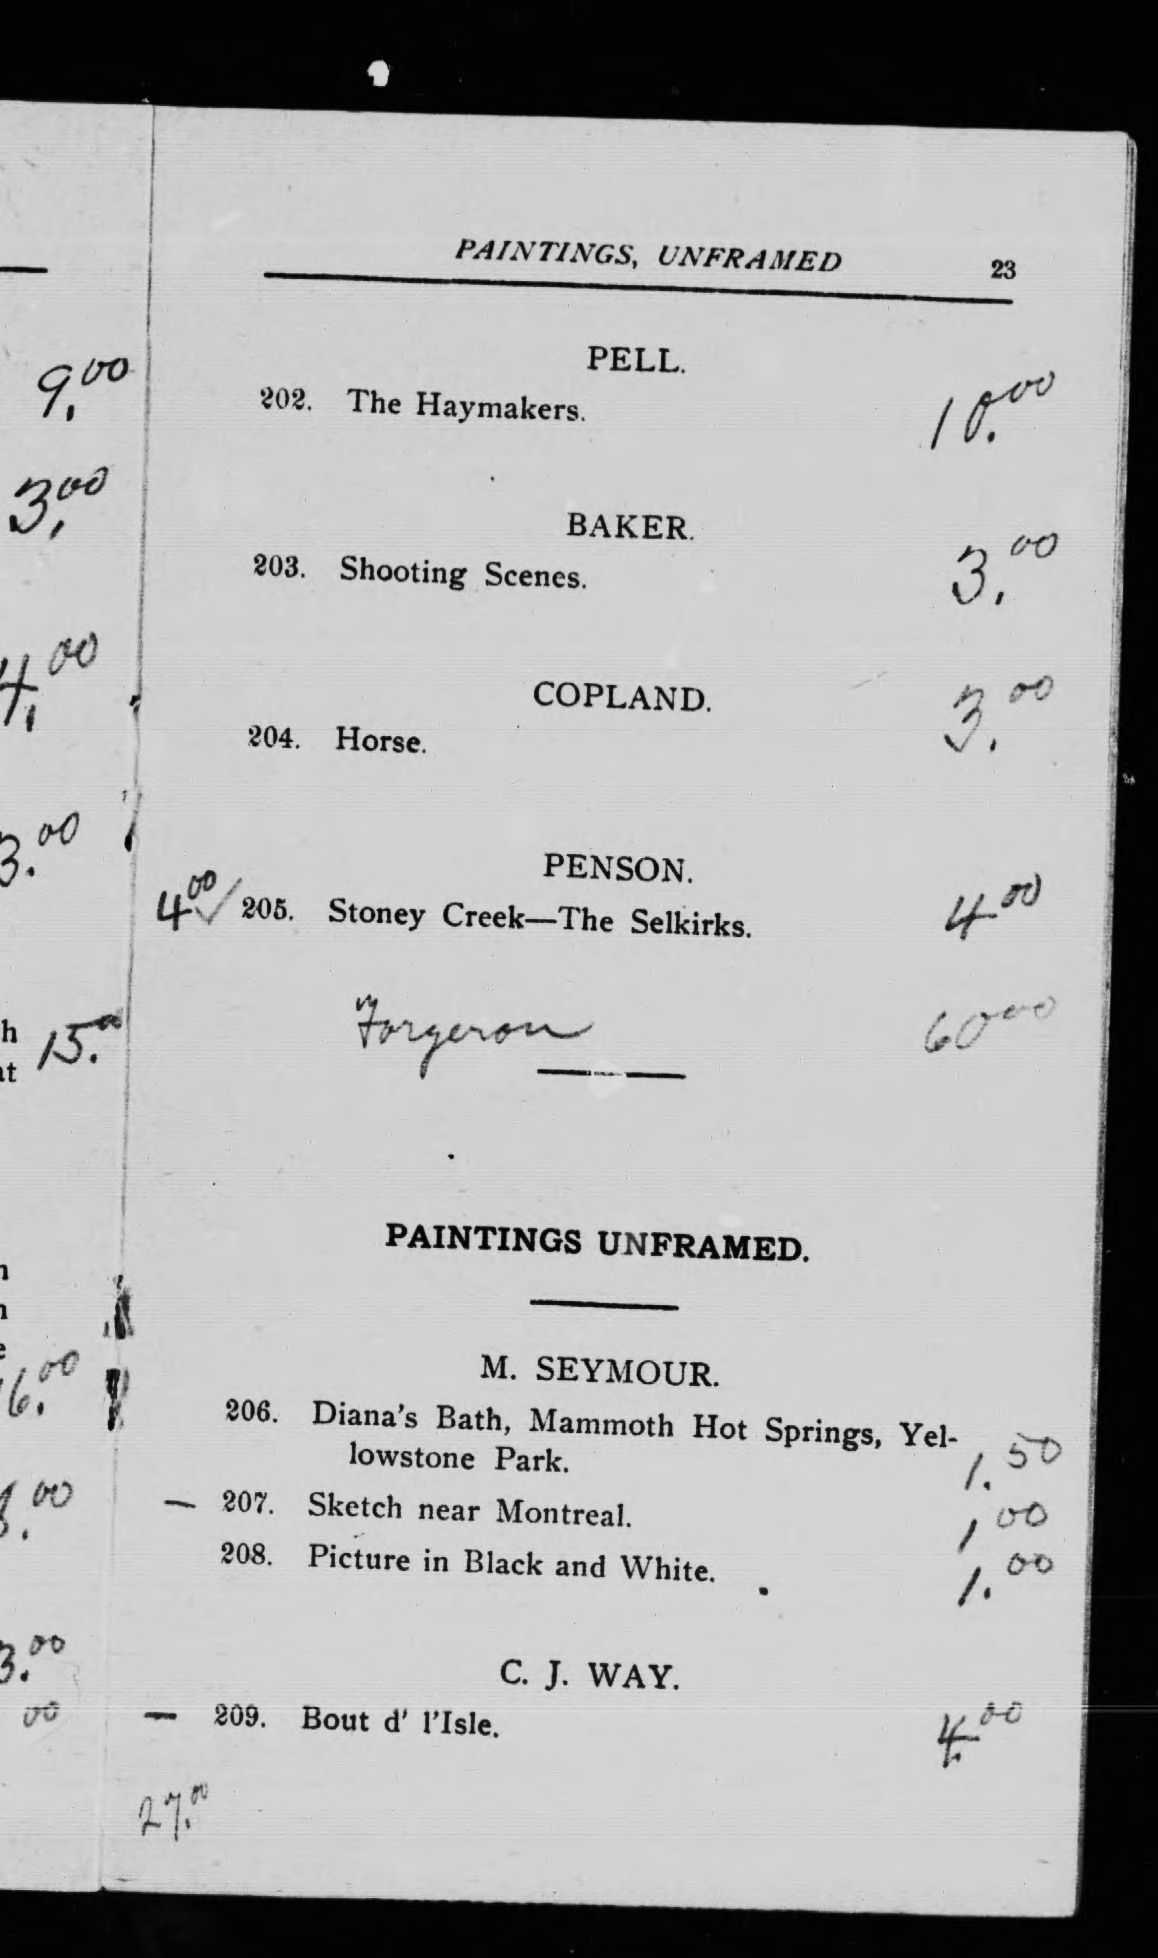 9.00
3.00
4.00
3.00
h 15.00
at
n
n
e
6.00
00
3.00
00
PAINTINGS, UNFRAMED 23
PELL.
202. The Haymakers. 10.00
BAKER.
203. Shooting Scenes. 3.00
COPLAND.
204. Horse. 3.00
PENSON.
4.00 ✓ 205. Stoney Creek—The Selkirks. 4.00
Forgeron 60.00
PAINTINGS UNFRAMED.
M. SEYMOUR.
206. Diana's Bath, Mammoth Hot Springs, Yel-
lowstone Park. 1.50
— 207. Sketch near Montreal. 1.00
208. Picture in Black and White. 1.00
C. J. WAY.
— 209. Bout d' l'Isle. 4.00
27.00